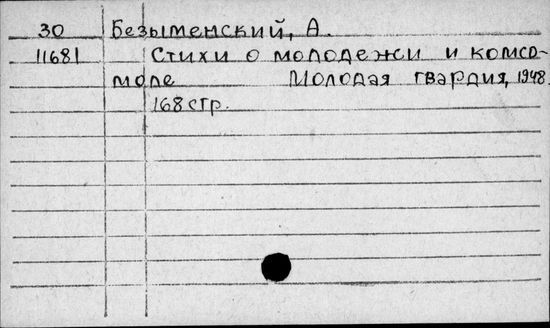 30 Безыменский, А.
11681 Стихи о молодежи и комсо-
моле Молодая гвардия, 1948.
168 стр.